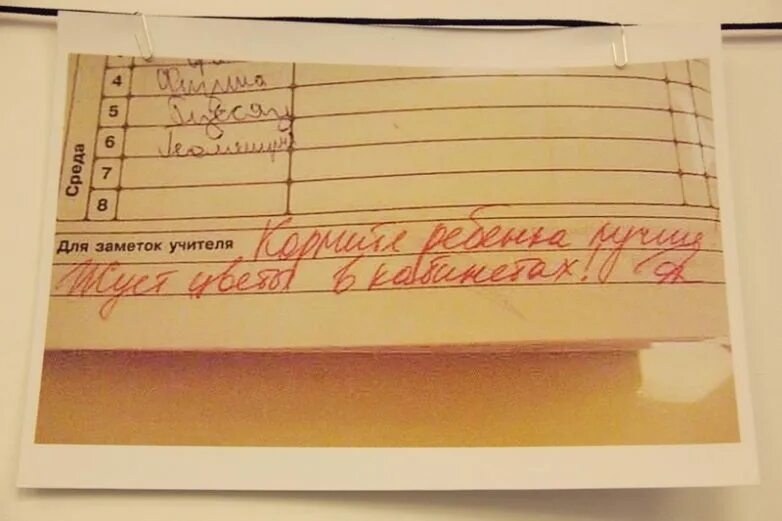 Среда
4 Физика
5
6 Геометрия
7
8
Для заметок учителя Кормите ребенка лучше
Жует цветы в кабинетах!